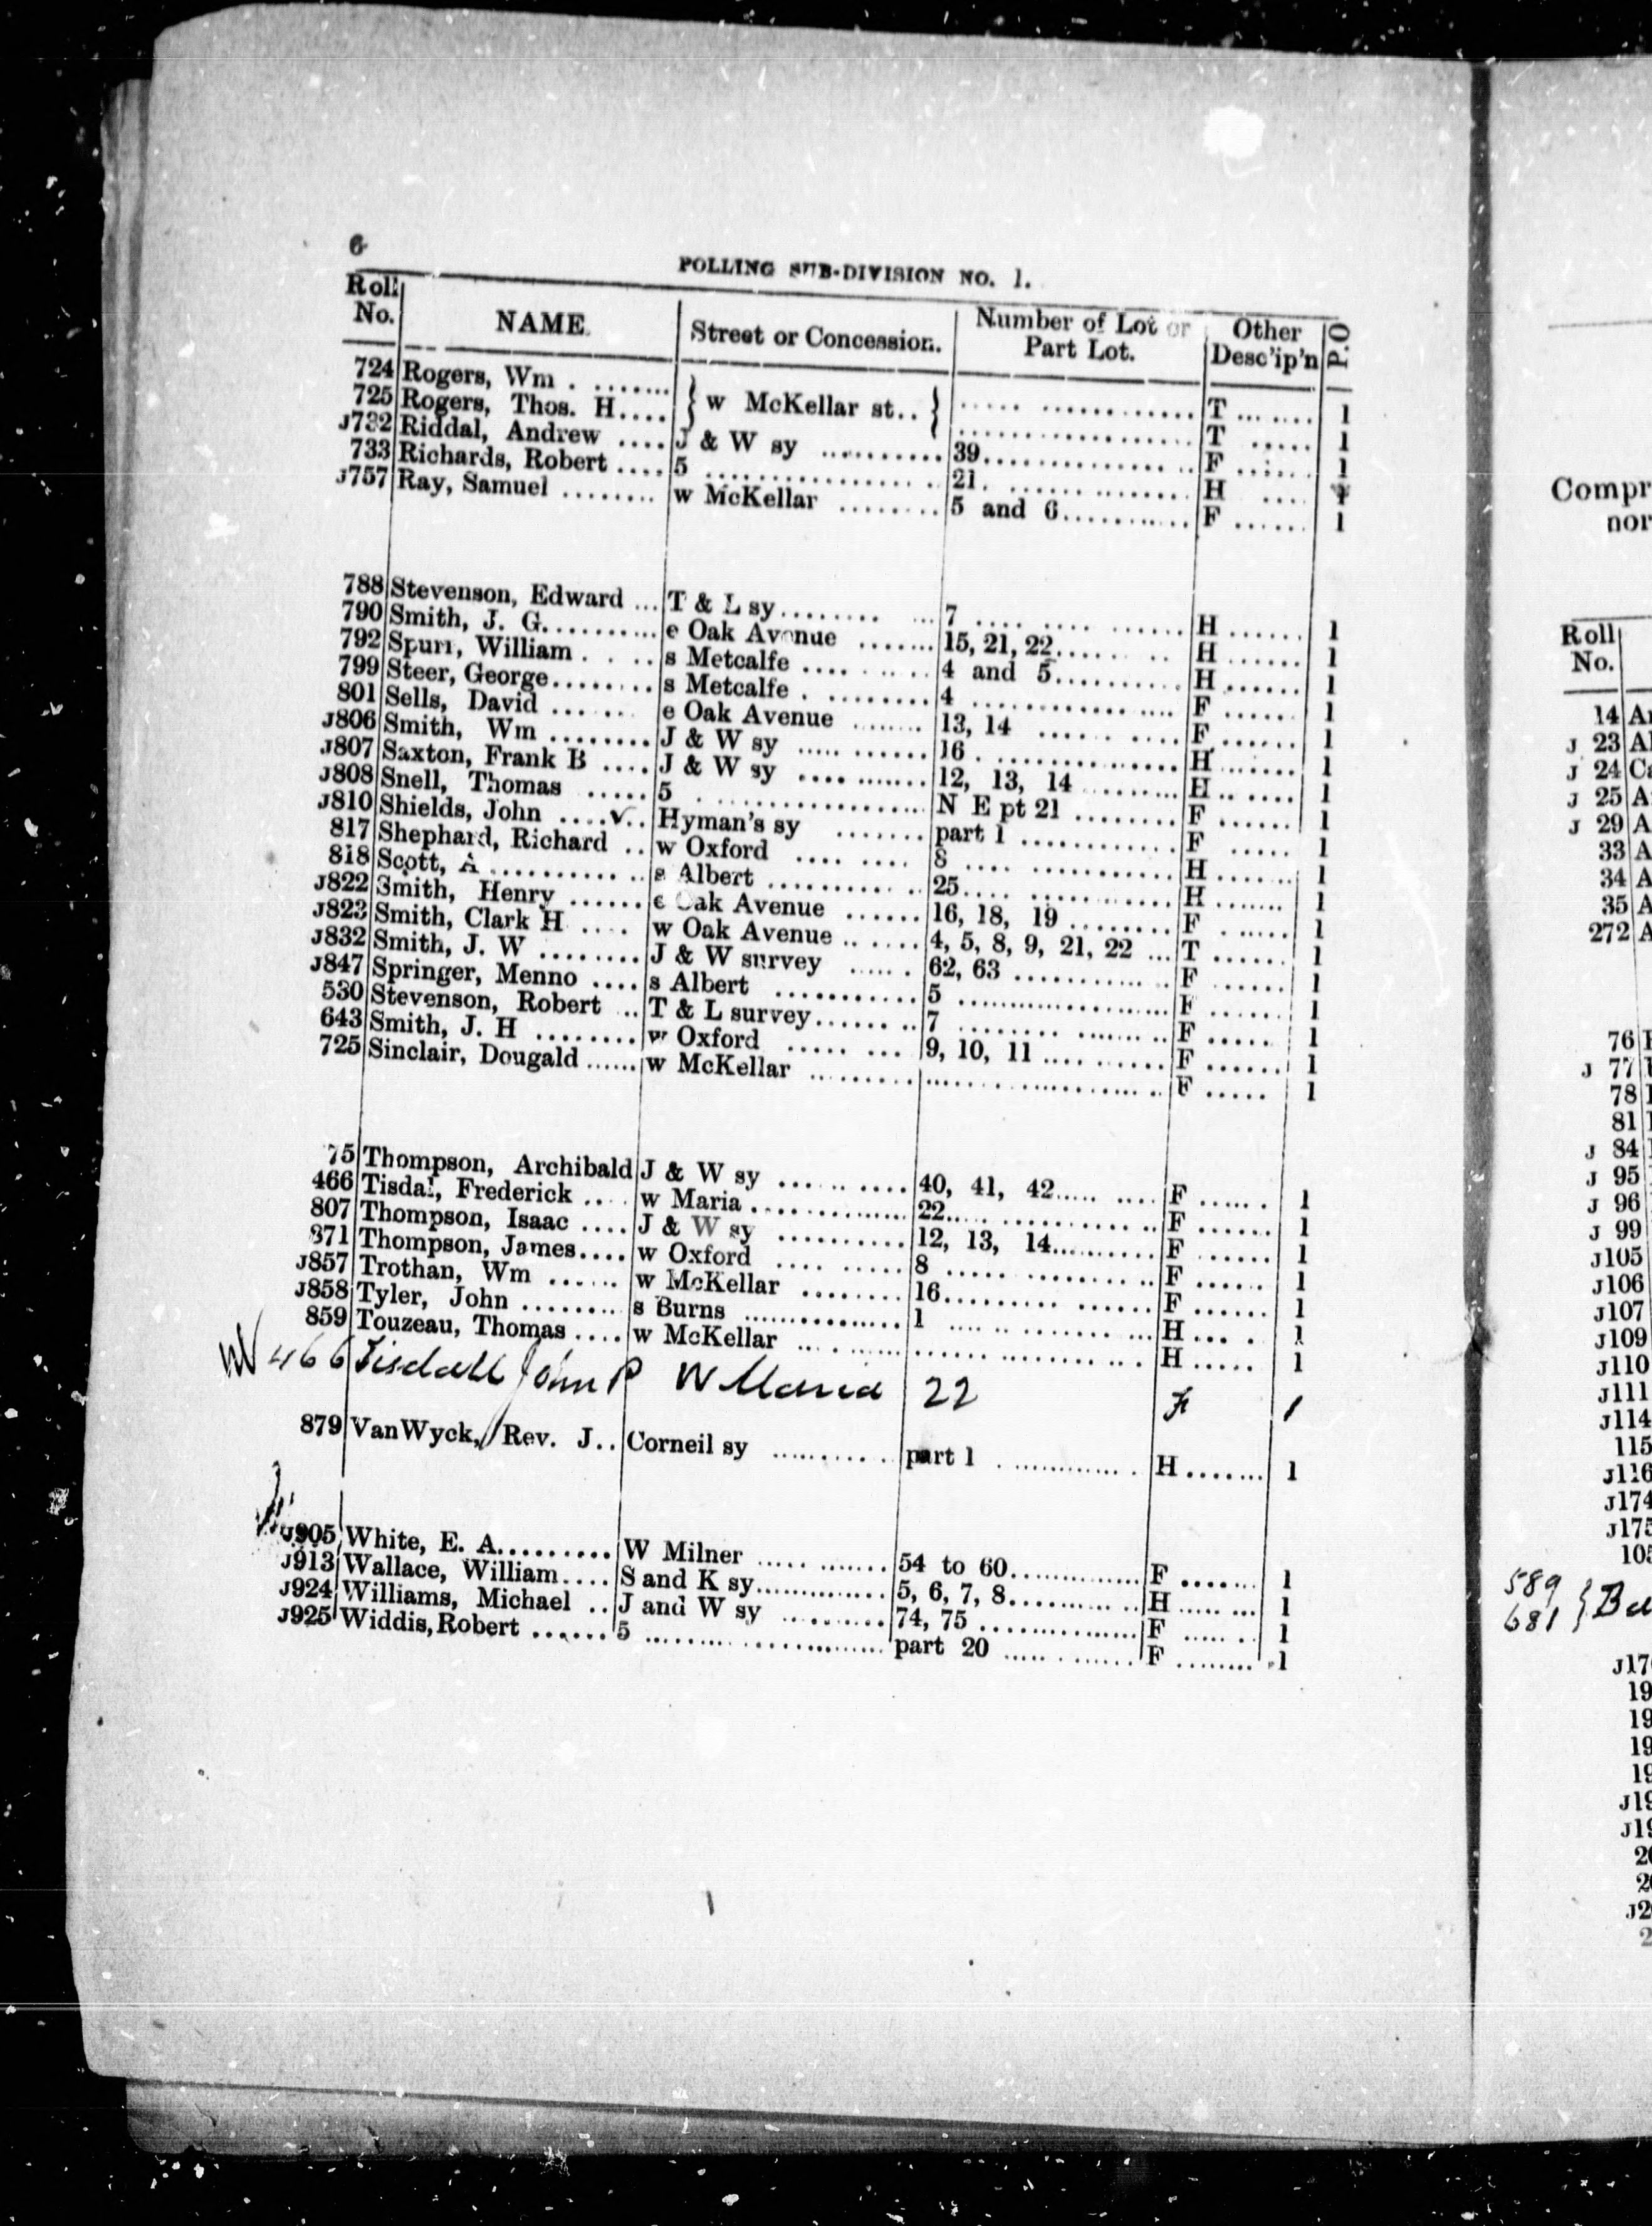 6
POLLING SUB-DIVISION NO. 1.
Roll No. NAME. Street or Concession. Number of Lot or Part Lot. Other Desc'ip'n P.O
724 Rogers, Wm . ....... } w McKellar st.. } ..... ............ T ... .... 1
725 Rogers, Thos. H.... .................. T ..... 1
J732 Riddal, Andrew .... J & W sy .......... 39................ .. F ..... 1
733 Richards, Robert .... 5 .................... 21. ................ H .... 1
J757 Ray, Samuel ........ w McKellar ........ 5 and 6........... F ...... 1
788 Stevenson, Edward ... T & L sy........ ... 7 .... .... ...... H ...... 1
790 Smith, J. G.......... e Oak Avenue ....... 15, 21, 22....... .. H ...... 1
792 Spurr, William . . .. s Metcalfe .... ..... 4 and 5.......... H ...... 1
799 Steer, George........ s Metcalfe . ........ 4 ............ .... F ...... 1
801 Sells, David ... ... e Oak Avenue ....... 13, 14 ...... .... F ...... 1
J806 Smith, Wm ........ J & W sy ..... ...... 16 . .............. H ....... 1
J807 Saxton, Frank B .... J & W sy .... ....... 12, 13, 14 ......... H .. .... 1
J808 Snell, Thomas ..... 5 .................. N E pt 21 ........ F ...... 1
J810 Shields, John ....✓.. Hyman's sy ....... part 1 ............ F ..... 1
817 Shephard, Richard .. w Oxford .... .... 8 .... ............ H ...... 1
818 Scott, A .......... .. s Albert .......... .. 25.... ........... H ....... 1
J822 Smith, Henry ...... e Oak Avenue ...... 16, 18, 19 ......... F ...... 1
J823 Smith, Clark H .... w Oak Avenue .. ..... 4, 5, 8, 9, 21, 22 ... T ...... 1
J832 Smith, J. W ........ J & W survey ..... . 62, 63 ........... .. F ...... 1
J847 Springer, Menno .... s Albert ........... 5 .................. F ...... 1
530 Stevenson, Robert .. T & L survey....... .. 7 ........ ....... .. F ..... 1
643 Smith, J. H ........ w Oxford ..... ... 9, 10, 11 .... ...... F ...... 1
725 Sinclair, Dougald ...... w McKellar .......... .................. .. F ..... 1
75 Thompson, Archibald J & W sy ... .. .... 40, 41, 42..... .... F ..... . 1
466 Tisdal, Frederick .. . w Maria ............. 22..... .......... .. F ...... 1
807 Thompson, Isaac .... J & W sy .......... 12, 13, 14.......... F ...... 1
871 Thompson, James.... w Oxford .... ..... 8 ..... .......... .. F ...... 1
J857 Trothan, Wm ...... w McKellar ........ 16......... ...... F ...... 1
J858 Tyler, John ........ s Burns .............. 1 .... .. ....... ... H ... . 1
859 Touzeau, Thomas .... w McKellar ... ...... ...... .......... .. . H ..... 1
466 Tisdall John P W Maria 22 F 1
879 VanWyck, Rev. J.. Corneil sy .......... part 1 . ............ . H ....... 1
J905 White, E. A......... W Milner ..... ....... 54 to 60............. F ....... 1
J913 Wallace, William.... S and K sy............. 5, 6, 7, 8.......... .. H ..... ... 1
J924 Williams, Michael .. J and W sy .......... 74, 75 ............... F ..... . 1
J925 Widdis, Robert ...... 5 ..................... part 20 ..... . ...... F ........ 1
Compr
nor
Roll
No.
14
J 23
J 24
J 25
J 29
33
34
35
272
76
J 77
78
81
J 84
J 95
J 96
J 99
J105
J106
J107
J109
J110
J111
J114
115
J116
J174
589
681